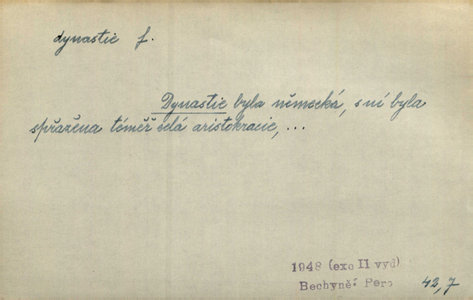 dynastie f.
Dynastie byla německá, s ní byla
spřažena téměř celá aristokracie, ...
1948 (exc II vyd)
Bechyně: Pero 42,7